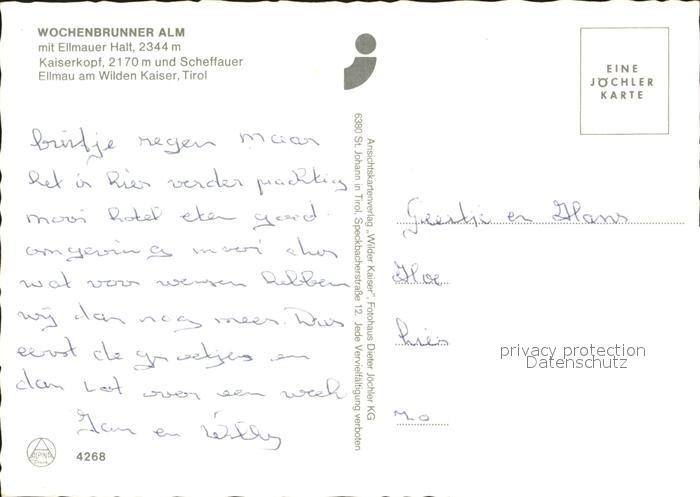 WOCHENBRUNNER ALM
mit Ellmauer Halt, 2344 m
Kaiserkopf, 2170 m und Scheffauer
Ellmau am Wilden Kaiser, Tirol
EINE
JÖCHLER
KARTE
buitje regen maar
het is hier verder prachtig
mooi hotel eten goed
omgeving mooi dus
wat voor wensen hebben
wij dan nog meer. Dus
eerst de groetjes en
dan tot over een week
Jan en Willy
Geertje en Hans
hier
Ansichtskartenverlag „Wilder Kaiser", Fotohaus Dieter Jöchler KG
6380 St. Johann in Tirol, Speckbacherstraße 12. Jede Vervielfältigung verboten
privacy protection
Datenschutz
ALPINA
4268